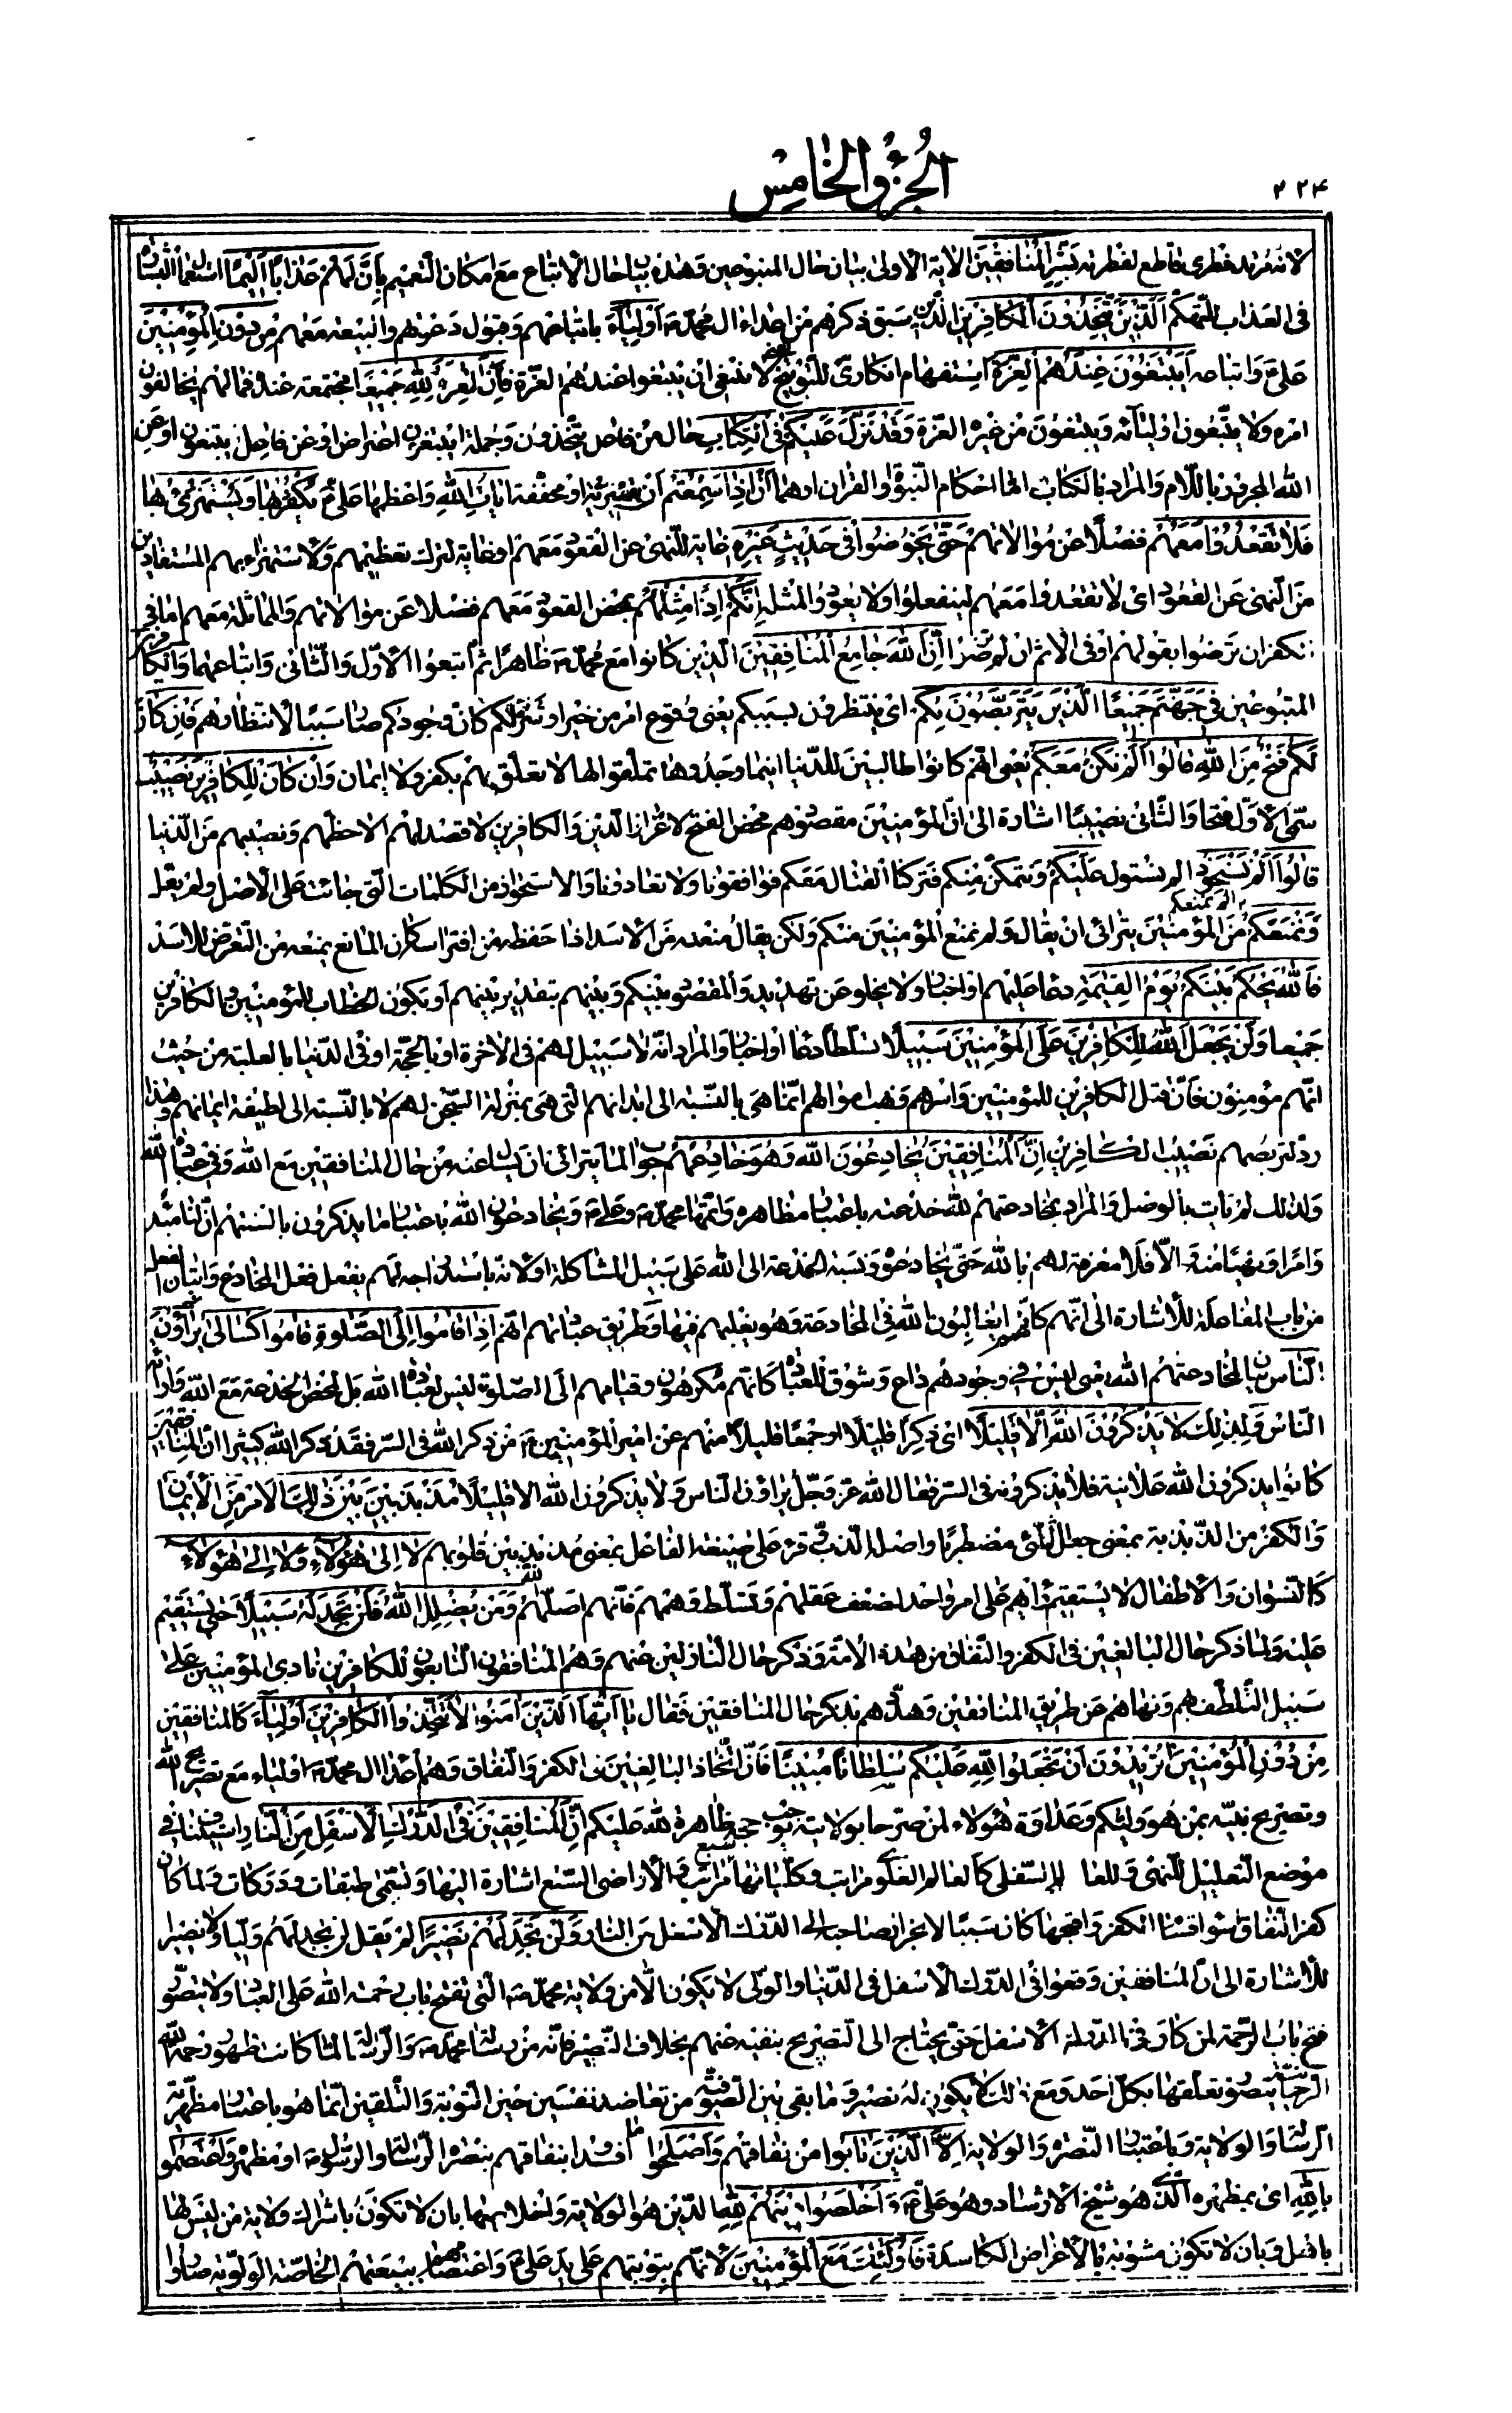 ۲۲۴
الجزؤ الخامس
لانه مرتد فطرى قاطع لفطرته بَشِّرِ الْمُنافِقينَ الاية الاولى بيان حال المتبوعين وهذه بيان حال الاتباع مع امكان التعميم بِاَنَّ لَهُمْ عَذاباً اَليماً استعمال البشارة
فى العذاب للتهكم اَلَّذينَ يَتَّخِذُونَ الْكافِرينَ الذين سبق ذكرهم من اعداء ال محمد ص اَوْلِياءَ باتباعهم وقبول دعوتهم والبيعة معهم مِنْ دُونِ الْمُؤْمِنينَ
على ع واتباعه اَيَبْتَغُونَ عِنْدَهُمُ الْعِزَّةَ استفهام انكارى للتوبيخ يعنى لا ينبغى ان يبتغوا عندهم العزة فَاِنَّ الْعِزَّةَ لِلّهِ جَميعاً مجتمعة عنده فمالهم يخالفون
امره ولا يتبعون اوليائه ويبتغون من غيره العزة وَقَدْ نَزَّلَ عَلَيْكُمْ فِى الْكِتابِ حال من فاعل يتخذون وجملة ايبتغون اعتراض او عن فاعل يبتغون او عن
الله المجرور باللام والمراد بالكتاب اما احكام النبوة او القران او هما اَنْ اِذا سَمِعْتُمْ ان تفسيرية او مخففة اياتِ اللهِ واعظمها على ع يُكْفَرُ بِها وَيُسْتَهْزَئُ بِها
فَلا تَقْعُدُوا مَعَهُمْ فضلا عن موالاتهم حَتّى يَخُوضُوا فى حَديثٍ غَيْرِهِ غاية للنهى عن القعود معهم او غاية لترك تعظيمهم والاستهزاء بهم المستفادين
من النهى عن القعود اى لا تقعدوا معهم لينفعلوا ولا يعودوا لمثله اِنَّكُمْ اِذاً مِثْلُهُمْ بمحض القعود معهم فضلا عن موالاتهم والمماثلة معهم اما فى
الكفر ان ترضوا بقولهم او فى الاثم ان لم ترضوا اِنَّ اللهَ جامِعُ الْمُنافِقينَ الذين كانوا مع محمد ص ظاهرا ثم اتبعوا الاول والثانى واتباعهما وَالْكافِرينَ
المتبوعين فى جَهَنَّمَ جَميعاً الَّذينَ يَتَرَبَّصُونَ بِكُمْ اى ينتظرون بسببكم يعنى وقوع امر من خير او شر لكم كان وجودكم صار سببا لانتظارهم فَاِنْ كانَ
لَكُمْ فَتْحٌ مِنَ اللهِ قالُوا اَلَمْ نَكُنْ مَعَكُمْ يعنى انهم كانوا طالبين للدنيا اينما وجدوها تملقوا لها لا تعلق لهم بكفر ولا ايمان وَاِنْ كانَ لِلْكافِرينَ نَصيبٌ
سمى الاول فتحا والثانى نصيبا اشارة الى ان المؤمنين مقصودهم محض الفتح لاعزاز الدين والكافرين لا قصد لهم الا حظهم ونصيبهم من الدنيا
قالُوا اَلَمْ نَسْتَحْوِذْ الم نستول عَلَيْكُمْ ونتمكن منكم فتركنا القتال معكم فوافقونا ولا تعادونا والاستحواذ من الكلمات التى جائت على الاصل ولم يعل
وَنَمْنَعْكُمْ الم نمنعكم مِنَ الْمُؤْمِنينَ يترائى ان يقال ولم نمنع المؤمنين منكم ولكن يقال منعه من الاسد اذا حفظه من افتراسه كان المانع يمنعه من التعرض للاسد
فَاللهُ يَحْكُمُ بَيْنَكُمْ يَوْمَ الْقِيمَةِ دعا عليهم او اخبار ولا يخلو عن تهديد والمقصود بينكم وبينهم بتقدير بينهم او يكون الخطاب للمؤمنين والكافرين
جميعا وَلَنْ يَجْعَلَ اللهُ لِلْكافِرينَ عَلَى الْمُؤْمِنينَ سَبيلاً تسلطا دعا او اخبار والمراد انه لا سبيل لهم فى الاخرة او بالحجة او فى الدنيا بالغلبة من حيث
انهم مؤمنون فان قتل الكافرين للمؤمنين واسرهم ونهب اموالهم انما هى بالنسبة الى ابدانهم التى هى بمنزلة السجن لهم لا بالنسبة الى لطيفة ايمانهم وهذا
رد لتربصهم نصيب الكافرين اِنَّ الْمُنافِقينَ يُخادِعُونَ اللهَ وَهُوَ خادِعُهُمْ جواب لما يترائى ان يسئل عنه من حال المنافقين مع الله وفى عبادة الله
ولذلك لم يات بالوصل والمراد بمخادعتهم لله خدعته باعتبار مظاهره واتمها محمد ص وعلى ع ويخادعون الله باعتبار ما يذكرون بالسنتهم ان لنا مبدء
وامرا ونهيا منه والا فلا معرفة لهم بالله حتى يخادعوه ونسبة الخدعة الى الله على سبيل المشاكلة او لانه باستدراجه لهم يفعل فعل المخادع واتيان الفعل
من باب المفاعلة للاشارة الى انهم كانهم يغالبون الله فى المخادعة وهو يغلبهم فيها وطريق عبادتهم انهم اِذا قامُوا اِلَى الصَّلوةِ قامُوا كُسالى يُراؤُنَ
النّاسَ بيان لمخادعتهم الله يعنى ليس فى وجودهم داع وشوق للعبادة كانهم مكرهون وقيامهم الى الصلوة ليس لعبادة الله بل لمحض الخدعة مع الله وارائة
الناس ولذلك لا يَذْكُرُونَ اللهَ اِلاّ قَليلاً اى ذكرا قليلا او جمعا قليلا منهم عن امير المؤمنين ع من ذكر الله فى السر فقد ذكر الله كثيرا ان المنافقين
كانوا يذكرون الله علانية فلا يذكرونه فى السر فقال الله عز وجل يراؤن الناس ولا يذكرون الله الا قليلا مُذَبْذَبينَ بَيْنَ ذلِكَ الامر من الايمان
والكفر من الذبذبة بمعنى جعل الشئ مضطربا واصله الذب قرء على صيغة الفاعل بمعنى مذبذبين قلوبهم لا اِلى هؤُلاءِ وَلا اِلى هؤُلاءِ
كالنسوان والاطفال لا يستقيم رأيهم على امر واحد لضعف عقلهم وتسلط وهمهم فانهم اضلهم الله وَمَنْ يُضْلِلِ اللهُ فَلَنْ تَجِدَ لَهُ سَبيلاً حتى يستقيم
عليه ولما ذكر حال البالغين فى الكفر والنفاق من هذه الامة وذكر حال النازلين عنهم وهم المنافقون التابعون للكافرين نادى المؤمنين على
سبيل التلطف بهم ونهاهم عن طريق المنافقين وهددهم بذكر حال المنافقين فقال يا اَيُّهَا الَّذينَ امَنُوا لا تَتَّخِذُوا الْكافِرينَ اَوْلِياءَ كالمنافقين
مِنْ دُونِ الْمُؤْمِنينَ اَتُريدُونَ اَنْ تَجْعَلُوا لِلّهِ عَلَيْكُمْ سُلْطاناً مُبيناً فان اتخاذ البالغين فى الكفر والنفاق وهم اعداء ال محمد ص اولياء مع تصريح الله
وتصريح نبيه بمن هو وليكم وعداوة هؤلاء لمن صرحا بولايته يوجب حجة ظاهرة لله عليكم اِنَّ الْمُنافِقينَ فِى الدَّرْكِ الْاَسْفَلِ مِنَ النّارِ استيناف فى
موضع التعليل للنهى وللعالم السفلى كالعالم العلوى مراتب وكلياتها سبع مراتب والاراضى السبع اشارة اليها وتسمى طبقات ودركات ولما كان
كفر النفاق اسوء اقسام الكفر واقبحها كان سببا لانجرار صاحبه الى الدرك الاسفل من النار وَلَنْ تَجِدَ لَهُمْ نَصيراً لم يقل لن تجد لهم وليا ولا نصيرا
للاشارة الى ان المنافقين وقعوا فى الدرك الاسفل فى الدنيا والولى لا يكون الا من ولاية محمد ص التى تفتح باب رحمة الله على العباد ولا يتصور
فتح باب الرحمة لمن كان فى الدرك الاسفل حتى يحتاج الى التصريح بنفيه عنهم بخلاف النصير فانه من رسالة محمد ص والرسالة لما كانت ظهور رحمة الله
الرحمانية يتصور تعلقها بكل احد ومع ذلك لا يكون له نصير وما بقى بين الصوفية من تعاضد نفسين حين التوبة والتلقين انما هو باعتبار مظهرية
الرسالة والولاية وباعتبار النصرة والولاية اِلَّا الَّذينَ تابُوا من نفاقهم وَاَصْلَحُوا ما افسدوا بنفاقهم بنصرة الرسالة والرسول ص او مظهره وَاعْتَصَمُوا
بِاللهِ اى بمظهره الذى هو شيخ الارشاد وهو على ع وَاَخْلَصُوا دينَهُمْ لِلّهِ الدين هو الولاية واخلاصها بان لا تكون باشراك ولاية من ليس لها
باهل وبان لا تكون مشوبة بالاغراض الكاسدة فَاُولئِكَ مَعَ الْمُؤْمِنينَ لانهم بتوبتهم على يد على ع واعتصامهم ببيعتهم الخاصة الولوية صاروا